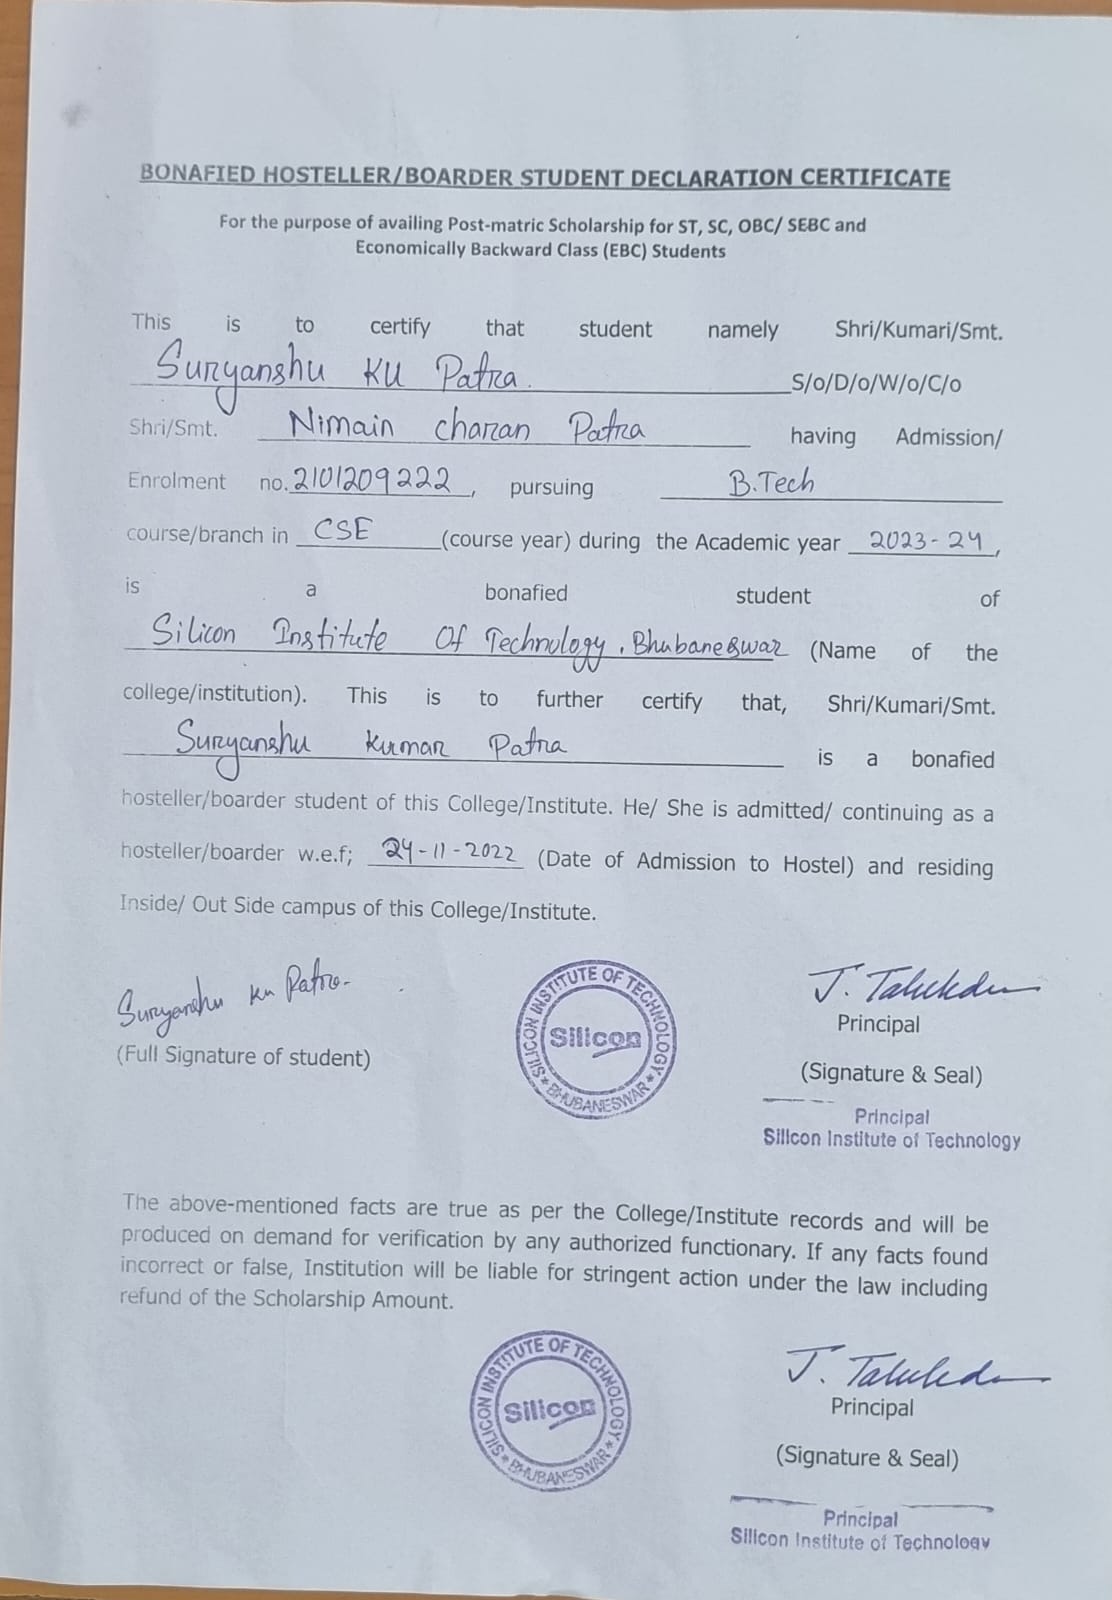 BONAFIED HOSTELLER/BOARDER STUDENT DECLARATION CERTIFICATE
For the purpose of availing Post-matric Scholarship for ST, SC, OBC/ SEBC and
Economically Backward Class (EBC) Students
This is to certify that student namely Shri/Kumari/Smt.
Suryanshu KU Patra. S/o/D/o/W/o/C/o
Shri/Smt. Nimain charan Patra having Admission/
Enrolment no. 2101209222, pursuing B.Tech
course/branch in CSE (course year) during the Academic year 2023-24,
is a bonafied student of
Silicon Institute Of Technology, Bhubaneswar (Name of the
college/institution). This is to further certify that, Shri/Kumari/Smt.
Suryanshu Kumar Patra is a bonafied
hosteller/boarder student of this College/Institute. He/ She is admitted/ continuing as a
hosteller/boarder w.e.f; 24-11-2022 (Date of Admission to Hostel) and residing
Inside/ Out Side campus of this College/Institute.
Suryanshu Ku Patra
(Full Signature of student)
SILICON INSTITUTE OF TECHNOLOGY
Silicon
★ BHUBANESWAR ★
J. Talukdar
Principal
(Signature & Seal)
Principal
Silicon Institute of Technology
The above-mentioned facts are true as per the College/Institute records and will be
produced on demand for verification by any authorized functionary. If any facts found
incorrect or false, Institution will be liable for stringent action under the law including
refund of the Scholarship Amount.
SILICON INSTITUTE OF TECHNOLOGY
Silicon
★ BHUBANESWAR ★
J. Talukdar
Principal
(Signature & Seal)
Principal
Silicon Institute of Technology